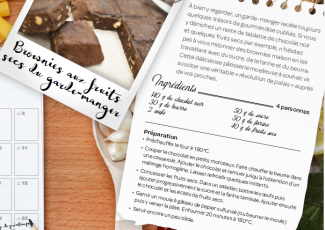 Brownies aux fruits
secs du garde-manger
À bien y regarder, un garde-manger recèle toujours
quelques trésors de gourmandise oubliés. Si vous
y dénichez un reste de tablette de chocolat noir
et quelques fruits secs par exemple, n'hésitez
pas à vous mitonner des brownies maison en les
travaillant avec du sucre, de la farine et du beurre.
Cette délicieuse pâtisserie le moelleux à souhait va
susciter une véritable « révolution de palais » auprès
de vos proches.
Ingrédients
4 personnes
110 g de chocolat noir
30 g de beurre
2 œufs
50 g de sucre
50 g de farine
40 g de fruits secs
Préparation
• Préchauffer le four à 180°C.
• Couper le chocolat en petits morceaux. Faire chauffer le beurre dans
une casserole. Ajouter le chocolat et remuer jusqu'à l'obtention d'un
mélange homogène. Laisser refroidir quelques instants.
• Concasser les fruits secs. Dans un saladier, battre les œufs puis
incorporer successivement le sucre et la farine tamisée. Ajouter ensuite
le chocolat et les éclats de fruits secs.
• Garnir un moule à gâteau de papier sulfurisé (ou beurrer le moule)
puis y verser la pâte. Enfourner 20 minutes à 180°C.
• Servir encore un peu tiède.